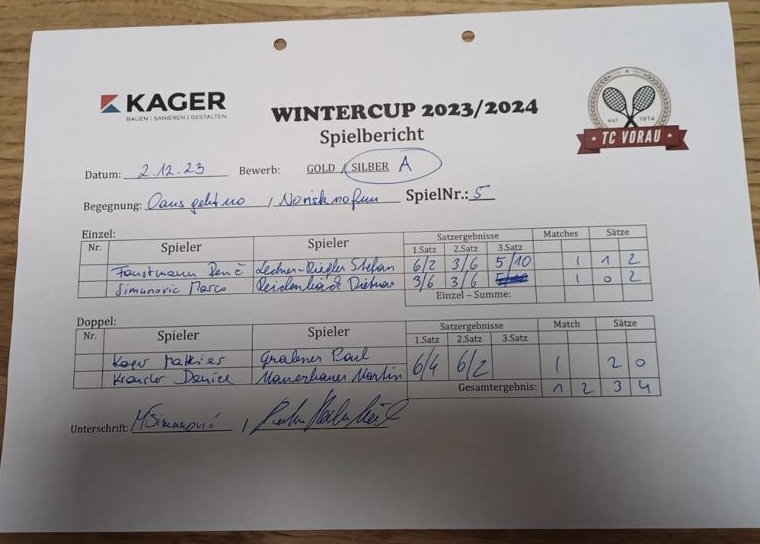 KAGER
BAUEN | SANIEREN | GESTALTEN
WINTERCUP 2023/2024
Spielbericht
est 1974
TC VORAU
Datum: 2.12.23 Bewerb: GOLD / SILBER A
Begegnung: Oans geht no / SpielNr.: 5
Einzel:
Nr. Spieler Spieler Satzergebnisse Matches Sätze
1.Satz 2.Satz 3.Satz
Faustmann René Lechner-Riegler Stefan 6/2 3/6 5/10 1 1 2
Simunovic Marco Dietmar 3/6 3/6 1 0 2
Einzel – Summe:
Doppel:
Nr. Spieler Spieler Satzergebnisse Match Sätze
1.Satz 2.Satz 3.Satz
Kager Paul 6/4 6/2 1 2 0
Mauerbauer Martin
Gesamtergebnis: 1 2 3 4
Unterschrift: MSimunović /